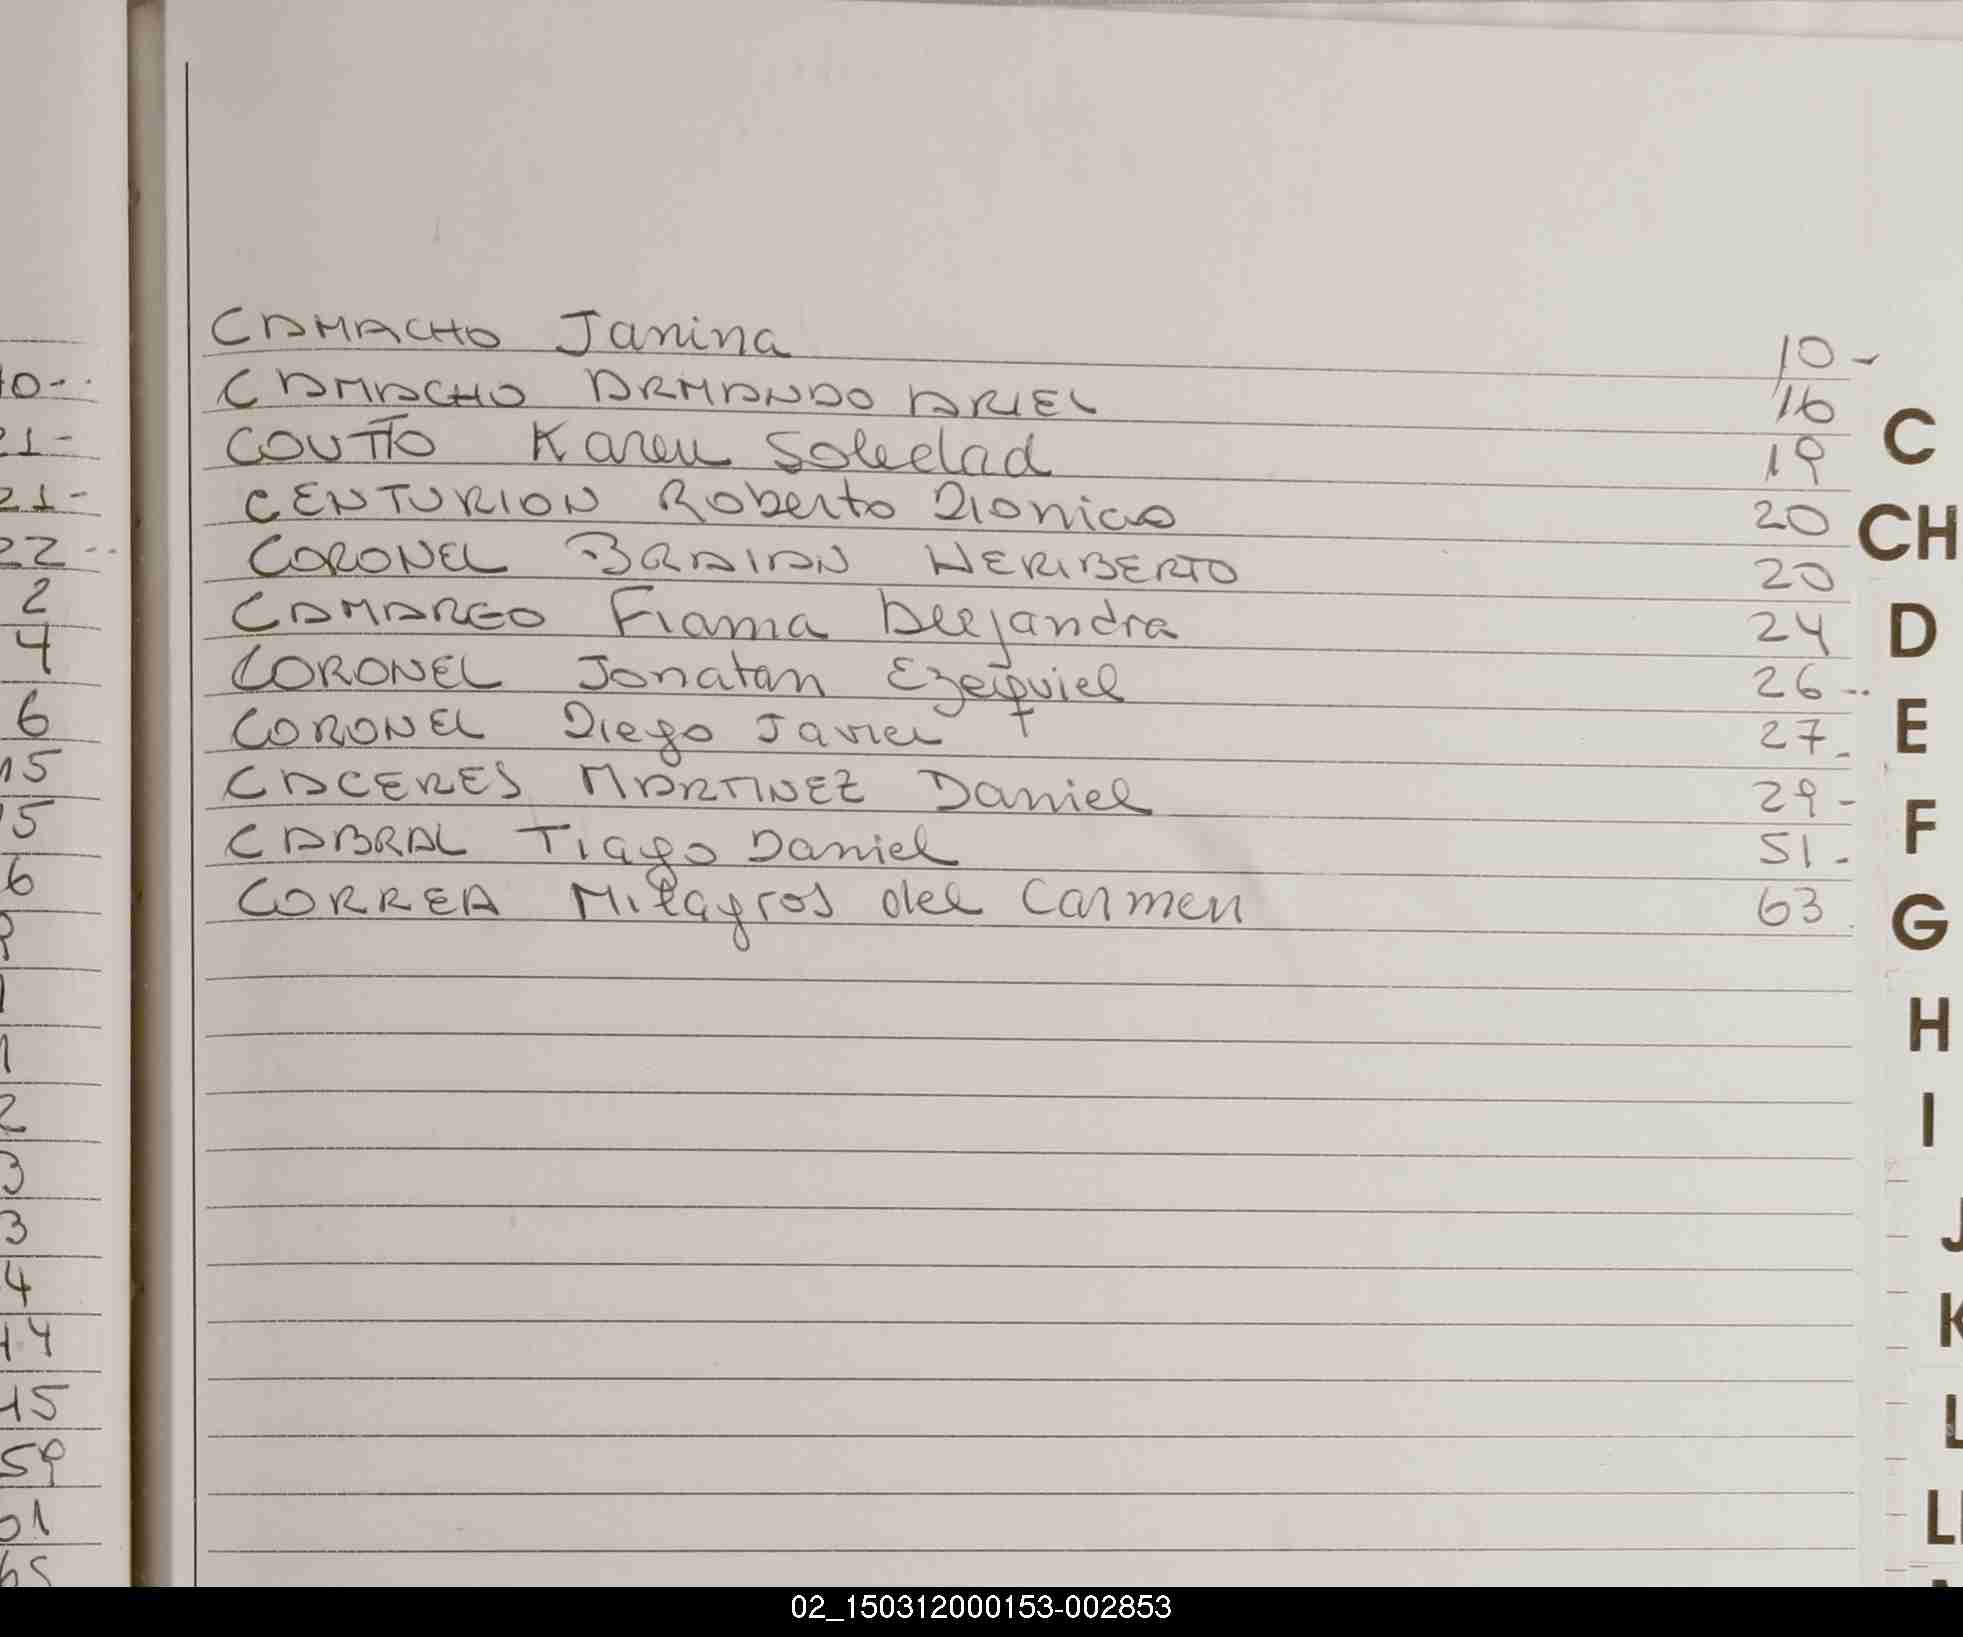 CAMACHO Janina 10-
CAMACHO ARMANDO ARIEL 16
COUTTO Karen Soledad 19
CENTURION Roberto Dionicio 20
CORONEL BRAIAN HERIBERTO 20
CAMARGO Fiama Alejandra 24
CORONEL Jonatan Ezequiel 26--
CORONEL Diego Javier 27-
CACERES MARTINEZ Daniel 29-
CABRAL Tiago Daniel 51-
CORREA Milagros del Carmen 63
C
CH
D
E
F
G
H
I
J
K
L
10--
21-
21-
22--
2
4
6
15
15
6
2
3
3
4
44
45
59
61
65
02_150312000153-002853